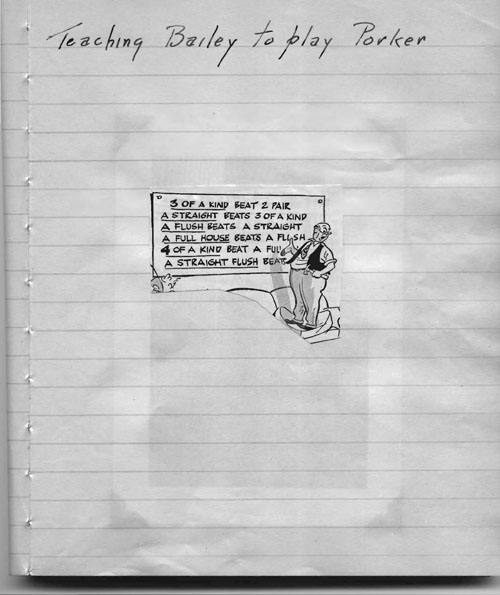 Teaching Bailey to play Porker
3 OF A KIND BEAT 2 PAIR
A STRAIGHT BEATS 3 OF A KIND
A FLUSH BEATS A STRAIGHT
A FULL HOUSE BEATS A FLUSH
4 OF A KIND BEAT A FUL
A STRAIGHT FLUSH BEATS